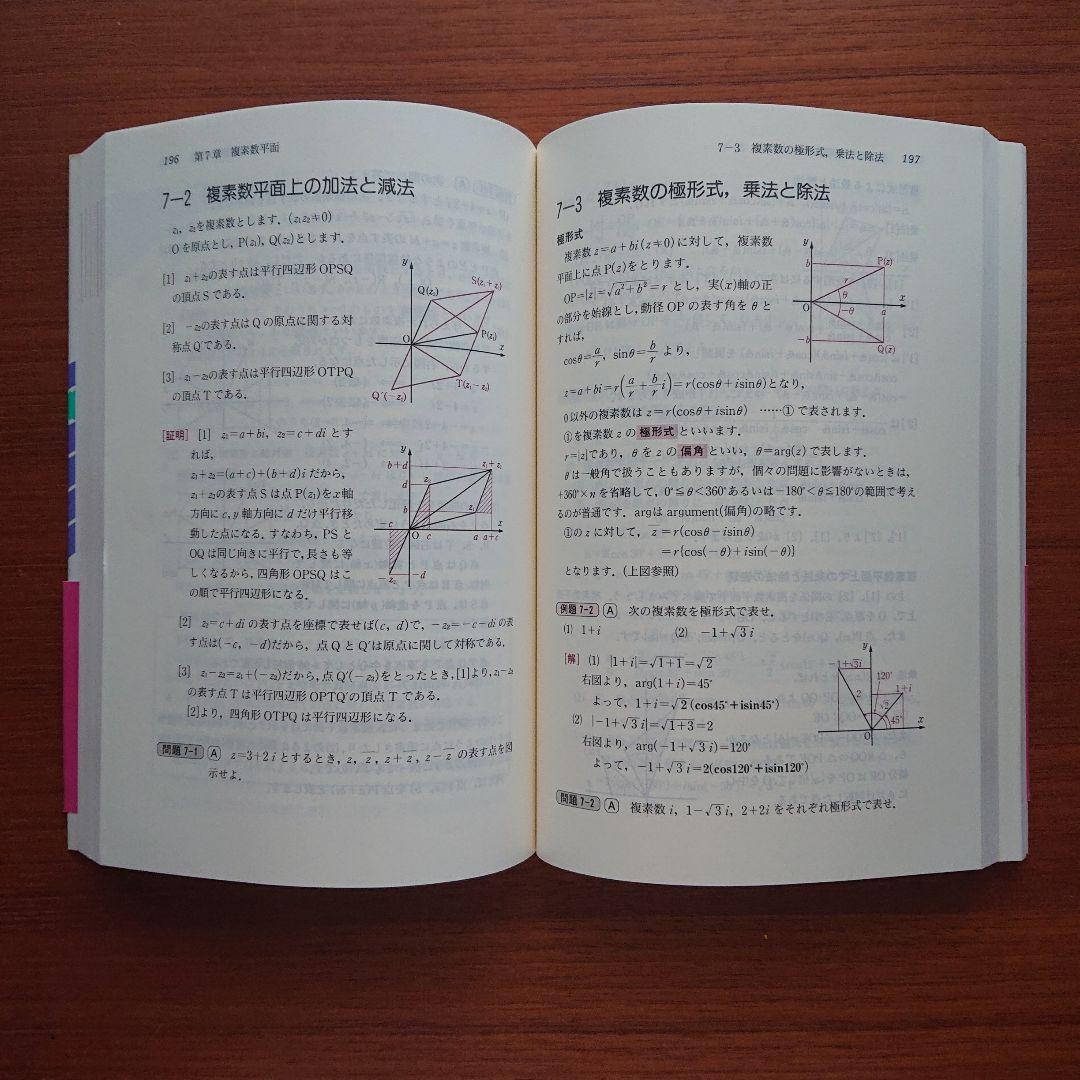 196 第7章 複素数平面
7−2 複素数平面上の加法と減法
z₁, z₂を複素数とします.(z₁z₂≠0)
Oを原点とし, P(z₁), Q(z₂)とします.
[1] z₁+z₂の表す点は平行四辺形OPSQ
の頂点Sである.
[2] −z₂の表す点はQの原点に関する対
称点Q′である.
[3] z₁−z₂の表す点は平行四辺形OTPQ
の頂点Tである.
y
S(z₁+z₂)
Q(z₂)
P(z₁)
O
x
T(z₁−z₂)
Q′(−z₂)
[証明] [1] z₁=a+bi, z₂=c+diとす
れば,
z₁+z₂=(a+c)+(b+d)iだから,
z₁+z₂の表す点Sは点P(z₁)をx軸
方向にc, y軸方向にdだけ平行移
動した点になる. すなわち, PSと
OQは同じ向きに平行で, 長さも等
しくなるから, 四角形OPSQはこ
の順で平行四辺形になる.
y
b+d
z₁+z₂
d
z₂
b
z₁
−c
O
c
a
a+c
x
−z₂
−d
[2] z₂=c+diの表す点を座標で表せば(c, d)で, −z₂=−c−diの表
す点は(−c, −d)だから, 点QとQ′は原点に関して対称である.
[3] z₁−z₂=z₁+(−z₂)だから, 点Q′(−z₂)をとったとき, [1]より, z₁−z₂
の表す点Tは平行四辺形OPTQ′の頂点Tである.
[2]より, 四角形OTPQは平行四辺形になる.
問題7-1 Ⓐ z=3+2iとするとき, z, z̅, z+z̅, z−z̅の表す点を図
示せよ.
7−3 複素数の極形式, 乗法と除法 197
7−3 複素数の極形式, 乗法と除法
極形式
複素数z=a+bi(z≠0)に対して, 複素数
平面上に点P(z)をとります.
OP=|z|=√(a²+b²)=rとし, 実(x)軸の正
の部分を始線とし, 動径OPの表す角をθと
すれば,
cosθ=a/r, sinθ=b/r より,
z=a+bi=r(a/r+b/r i)=r(cosθ+isinθ)となり,
0以外の複素数はz=r(cosθ+isinθ) ……①で表されます.
①を複素数zの極形式といいます.
r=|z|であり, θをzの偏角といい, θ=arg(z)で表します.
θは一般角で扱うこともありますが, 個々の問題に影響がないときは,
+360°×nを省略して, 0°≦θ<360°あるいは−180°<θ≦180°の範囲で考え
るのが普通です. argはargument(偏角)の略です.
①のzに対して, z̅=r(cosθ−isinθ)
=r{cos(−θ)+isin(−θ)}
となります.(上図参照)
y
b
P(z)
r
θ
x
O
−θ
a
−b
Q(z̅)
例題7-2 Ⓐ 次の複素数を極形式で表せ.
(1) 1+i (2) −1+√3 i
[解] (1) |1+i|=√(1+1)=√2
右図より, arg(1+i)=45°
よって, 1+i=√2 (cos45°+isin45°)
(2) |−1+√3 i|=√(1+3)=2
右図より, arg(−1+√3 i)=120°
よって, −1+√3 i=2(cos120°+isin120°)
y
−1+√3i
120°
1+i
2
√2
45°
x
O
問題7-2 Ⓐ 複素数i, 1−√3 i, 2+2iをそれぞれ極形式で表せ.